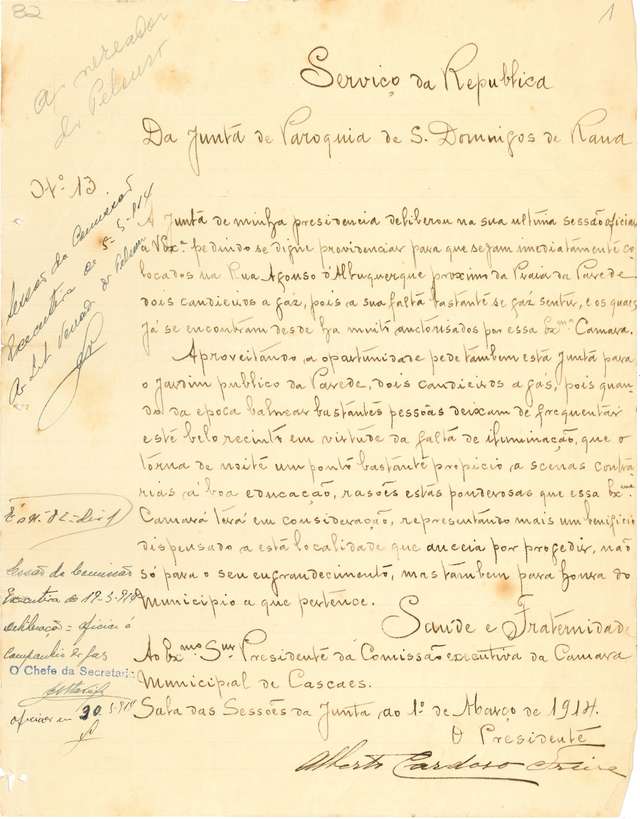 82
1
Serviço da Republica
Da Juntá de Paroquia de S. Domingos de Rana
Nº 13
A Juntá de minha presidencia deliberou na sua ultima sessão oficiar
a V. Exª pedindo se digne providenciar para que sejam imediatamenté co-
locados na Rua Afonso d'Albuquerque proximo da Praia da Parede
dois candieiros a gaz, pois a sua faltá bastanté se faz sentir, e os quaes
já se encontram desde ha muitó auctorisados por essa Exmª Camara.
Aproveitándo a oportunidade pede tambem está Juntá para
o Jardim publico da Parede, dois candieiros a gás, pois quan-
do da epoca balnear bastantes pessoâs deixam de frequentár
esté belo recintó em virtude da faltá de iluminação, que o
tórna de noité um pontó bastanté propicio a scenas contrá-
rias á boa educação, rasões estás ponderosas que essa Exmª
Camará terá em consideração, representándo mais um beneficio
dispensado a está localidade que anceia por progedir, não
só para o seu engrandecimentó, mas tambem para honra do
Municipio a que pertence.
Saúde e Fraternidade
Ao Exmo Snr Presidenté da Comissão executiva da Camara
Municipal de Cascaes.
Sala das Sessões da Junta ao 1º de Março de 1914.
O Presidenté
Alberto Cardoso Freire
a vereador
do Pelouro
Sessão da Comissão
Executiva de 5-3-914
E o nº 82
Sessão da Comissão
Executiva de 19-3-914
deliberação = oficiar á
Companhia do Gas
O Chefe da Secretaria
oficiou em 30-3-914